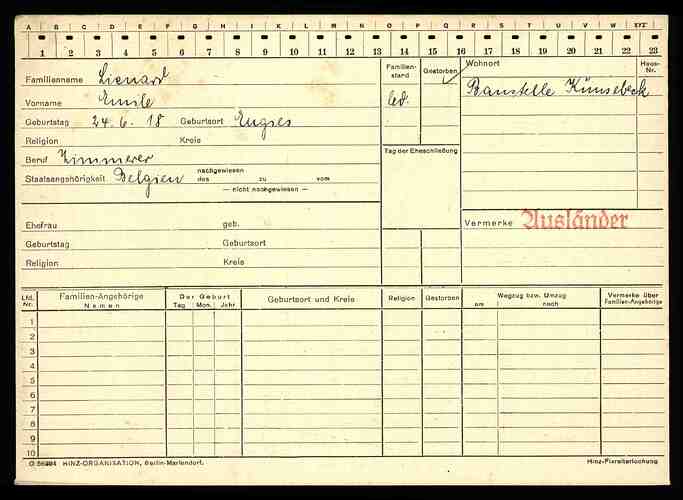 A B C D E F G H I J K L M N O P Q R S T U V W XYZ
1 2 3 4 5 6 7 8 9 10 11 12 13 14 15 16 17 18 19 20 21 22 23
Familienname Lienard
Familien-stand led.
Gestorben
Wohnort Baustelle Künsebeck
Haus-Nr.
Vorname Emile
Geburtstag 24. 6. 18 Geburtsort Engses
Religion Kreis
Beruf Zimmerer
Tag der Eheschließung
Staatsangehörigkeit Belgien nachgewiesen
des zu vom
— nicht nachgewiesen —
Ehefrau geb.
Vermerke Ausländer
Geburtstag Geburtsort
Religion Kreis
Lfd. Nr. Familien-Angehörige Namen Der Geburt Tag Mon. Jahr Geburtsort und Kreis Religion Gestorben Wegzug bzw. Umzug am nach Vermerke über Familien-Angehörige
1
2
3
4
5
6
7
8
9
10
HINZ-ORGANISATION, Berlin-Mariendorf. Hinz-Fixreiterlochung